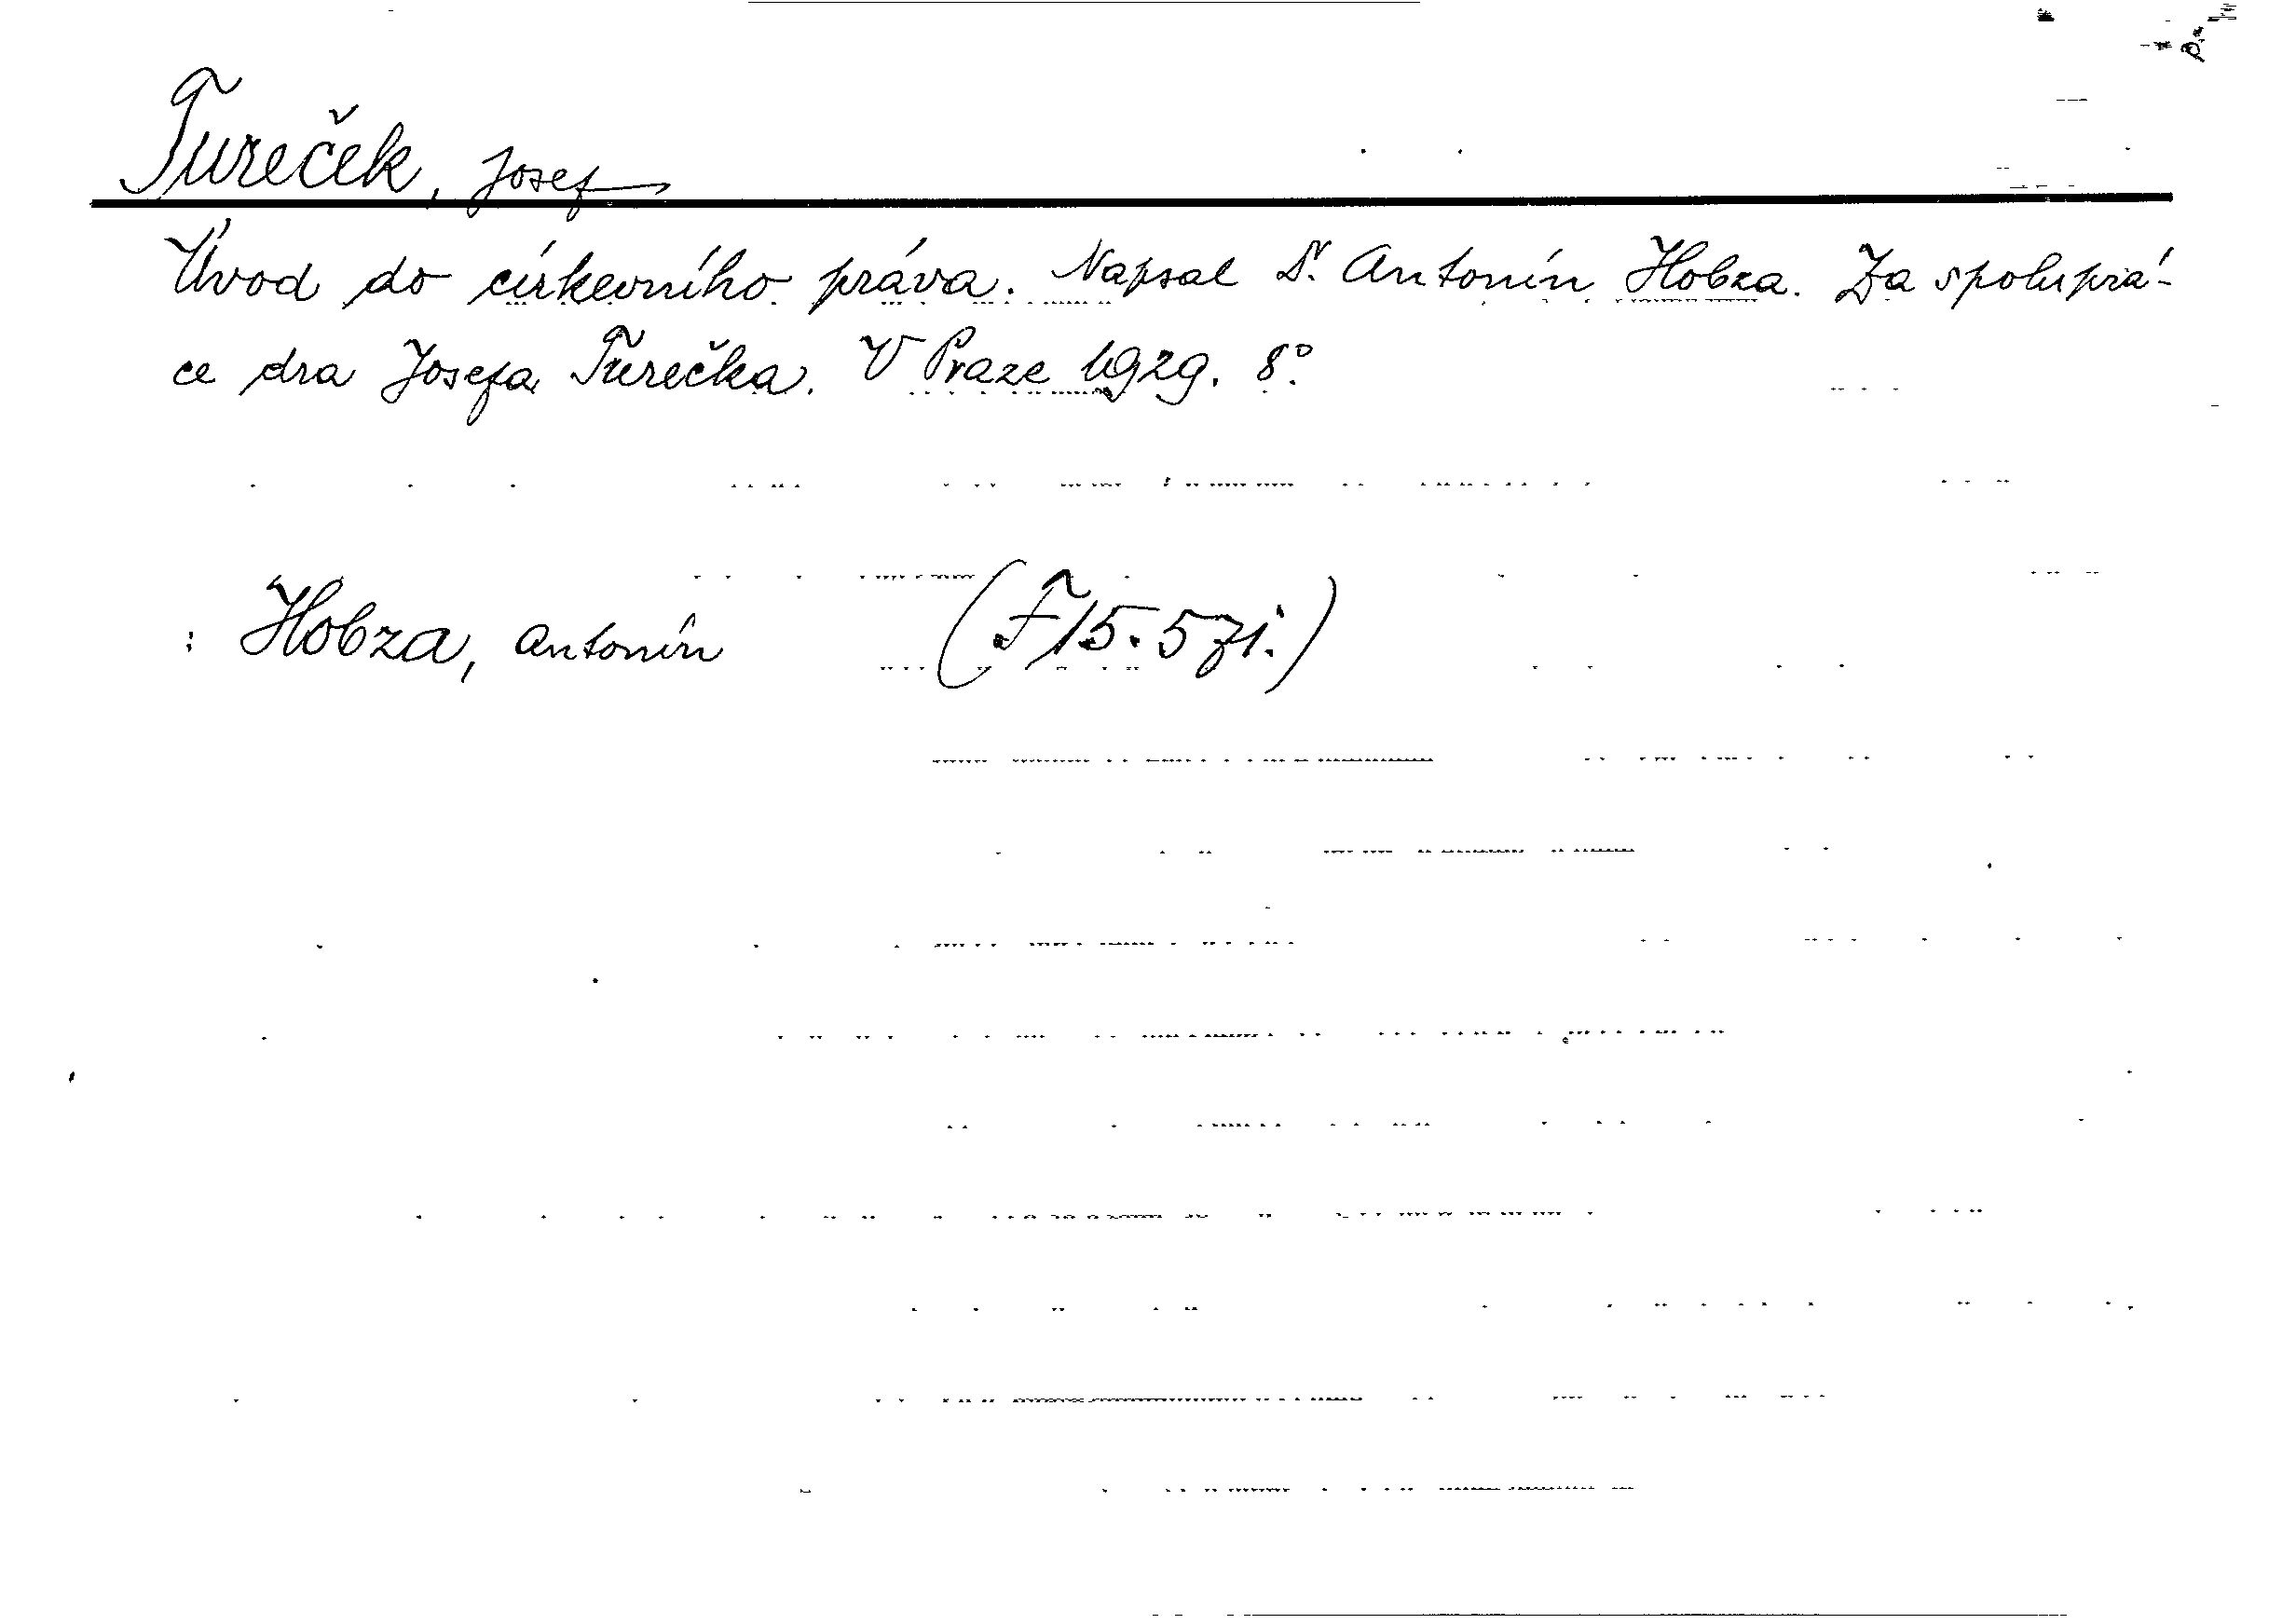 Tureček, Josef
Úvod do církevního práva. Napsal Dr. Antonín Hobza. Za spoluprá-
ce dra Josefa Turečka. V Praze 1929. 8°.
: Hobza, Antonín (F 15.571.)